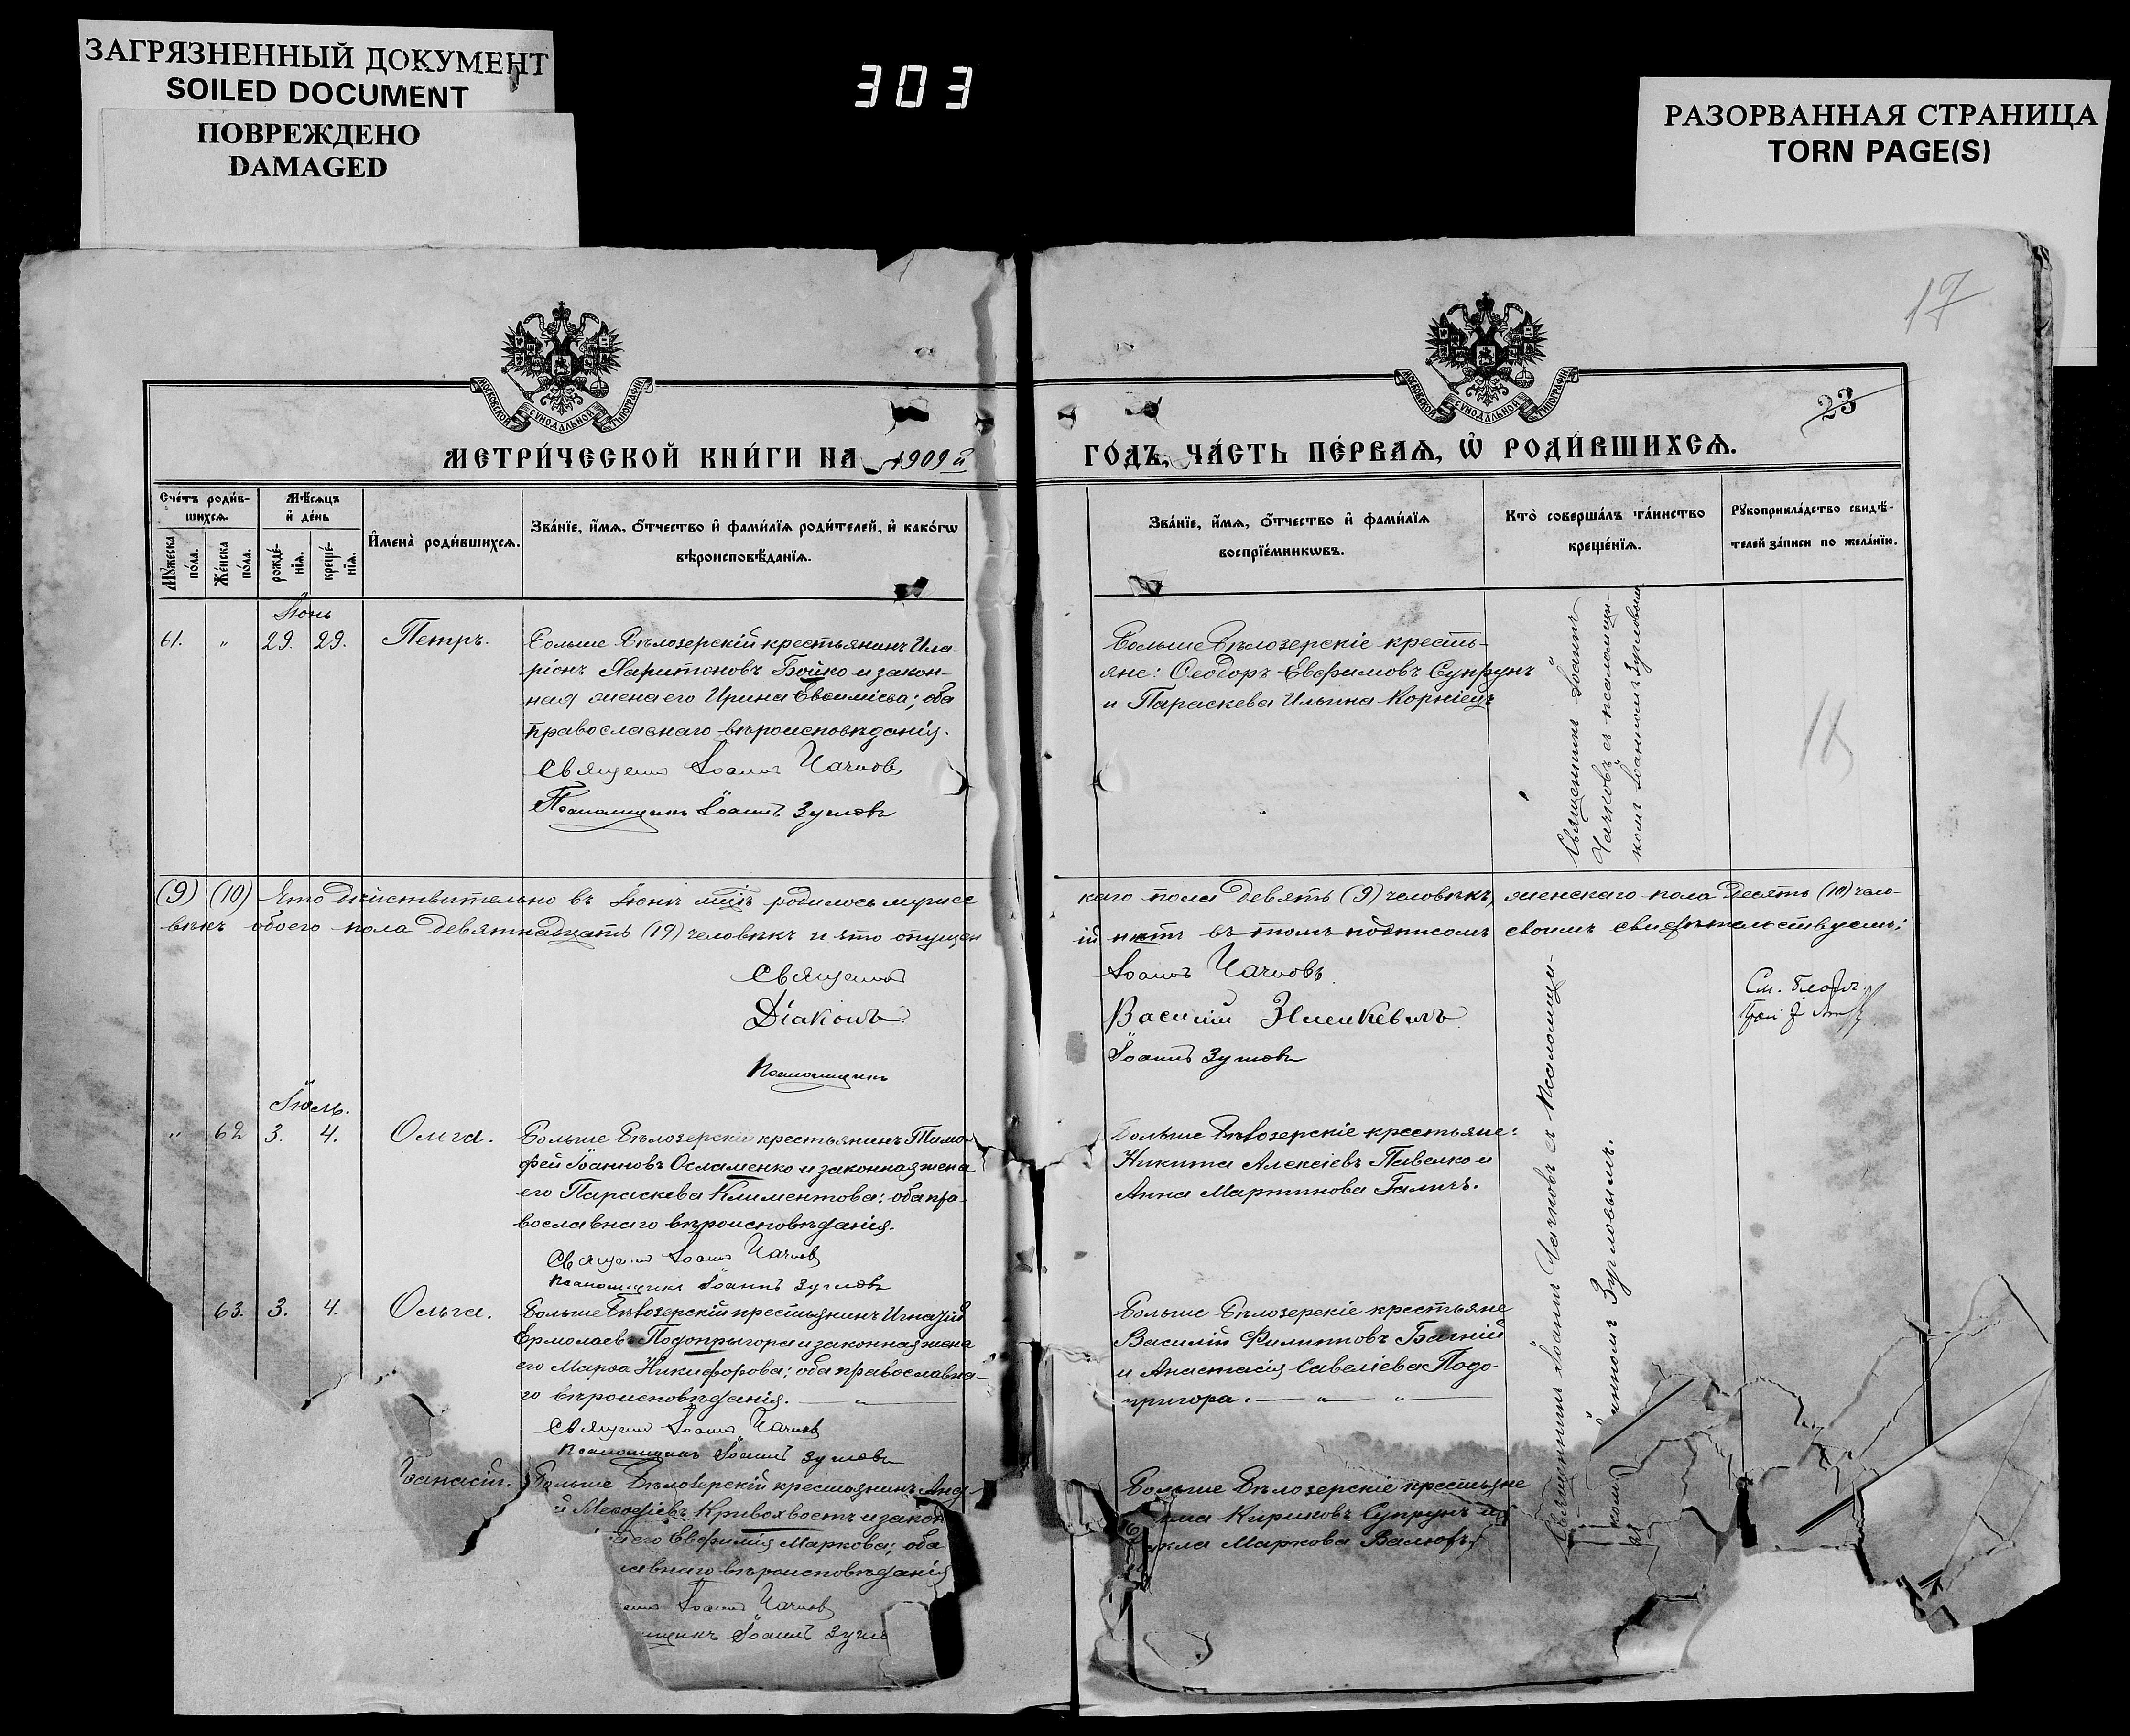 ЗАГРЯЗНЕННЫЙ ДОКУМЕНТ
SOILED DOCUMENT
ПОВРЕЖДЕНО
DAMAGED
303
РАЗОРВАННАЯ СТРАНИЦА
TORN PAGE(S)
17
23
МОСКОВСКОЙ СѴНОДАЛЬНОЙ ТИПОГРАФІИ
МОСКОВСКОЙ СѴНОДАЛЬНОЙ ТИПОГРАФІИ
МЕТРИ́ЧЕСКОЙ КНИ́ГИ НА 1909 й
ГО́ДЪ, ЧА́СТЬ ПЕ́РВАѦ, Ѡ҆ РОДИ́ВШИХСѦ.
Сче́тъ роди́в-
шихсѧ.
Мѣ́сѧцъ
и҆ де́нь
Мꙋ́жеска
по́ла.
Же́нска
по́ла.
рожде́-
нїѧ.
креще́-
нїѧ.
И҆мена̀ роди́вшихсѧ.
Зва́нїе, и҆́мѧ, ѻ҆́тчество и҆ фами́лїѧ роди́телей, и҆ како́гѡ
вѣроисповѣ́данїѧ.
Зва́нїе, и҆́мѧ, ѻ҆́тчество и҆ фами́лїѧ
воспрїе́мникѡвъ.
Кто̀ соверша́лъ та́инство
креще́нїѧ.
Рꙋкоприкла́дство свидѣ́-
телей за́писи по жела́нїю.
Іюнь
61. " 29. 29. Петръ.
Больше Бѣлозерскій крестьянинъ Ила-
ріонъ Харитоновъ Бойко и закон-
ная жена его Ирина Евѳиміева; оба
православнаго вѣроисповѣданія.
Священ Іоаннъ Чачковъ
Псаломщикъ Іоаннъ Зугловъ
Больше Бѣлозерскіе кресть-
яне: Ѳеодоръ Евфимовъ Супрунъ
и Параскева Ильина Корніецъ
Священникъ Іоаннъ
Чачковъ съ псаломщи-
комъ Іоанномъ Зугловымъ
(9) (10) Что дѣйствительно въ Іюнѣ мцѣ родилось мужес
каго пола девять (9) человѣкъ, женскаго пола десять (10) чело-
вѣкъ обоего пола девятнадцать (19) человѣкъ и что опущен
ій нѣтъ въ томъ подписомъ своимъ свидѣтельствуемъ:
Священ
Іоаннъ Чачковъ
Діаконъ
Василій
Псаломщикъ
Іоаннъ Зугловъ
См.
Іюль.
" 62 3. 4. Ольга.
Больше Бѣлозерскій крестьянинъ Тимо-
фей Іоанновъ Осламенко и законная жена
его Параскева Климентова: оба пра-
вославнаго вѣроисповѣданія.
Священ Іоаннъ Чачковъ
Псаломщикъ Іоаннъ Зугловъ
Больше Бѣлозерскіе крестьяне:
Никита Алексіевъ Павелко и
Анна Мартинова Галичъ.
Священникъ Іоаннъ Чачковъ съ Псаломщи-
комъ Іоанномъ Зугловымъ.
63. 3. 4. Ольга.
Больше Бѣлозерскій крестьянинъ Игнатій
Ермолаевъ Подопрыгора и законная жена
его Марѳа Никифорова; оба православна-
го вѣроисповѣданія. — " —
Священ Іоаннъ Чачковъ
Псаломщикъ Іоаннъ Зугловъ
Больше Бѣлозерскіе крестьяне
Василій Филипповъ Багній
и Анастасія Савеліева Подо-
пригора. — " — " —
ѳанасій.
Больше Бѣлозерскій крестьянинъ Анд-
й Меѳодіевъ Кривохвостъ и закон
его Евфимія Маркова; оба
лавнаго вѣроисповѣданія
Іоаннъ Чачковъ
щикъ Іоаннъ Зугло
Больше Бѣлозерскіе крестьяне
ма Кириковъ Супрунъ и
кла Маркова